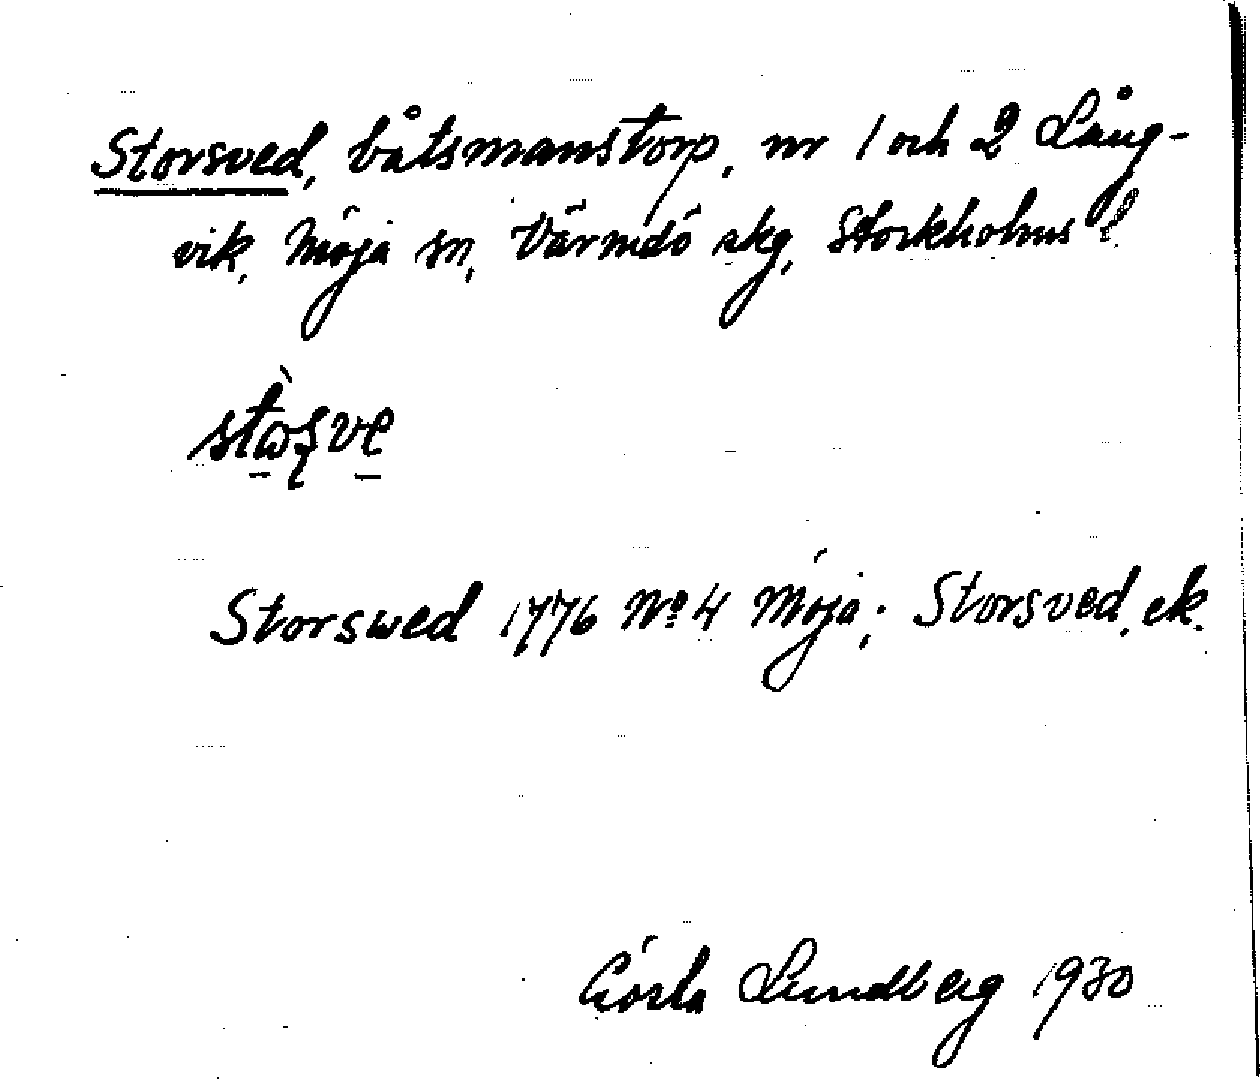 Storsved, båtsmanstorp, nr 1 och 2 Lång-
vik, Möja sn, Värmdö skg, Stockholms l.
Storswed 1776 No 4 Möja; Storsved, ek.
Gösta Lundberg 1930